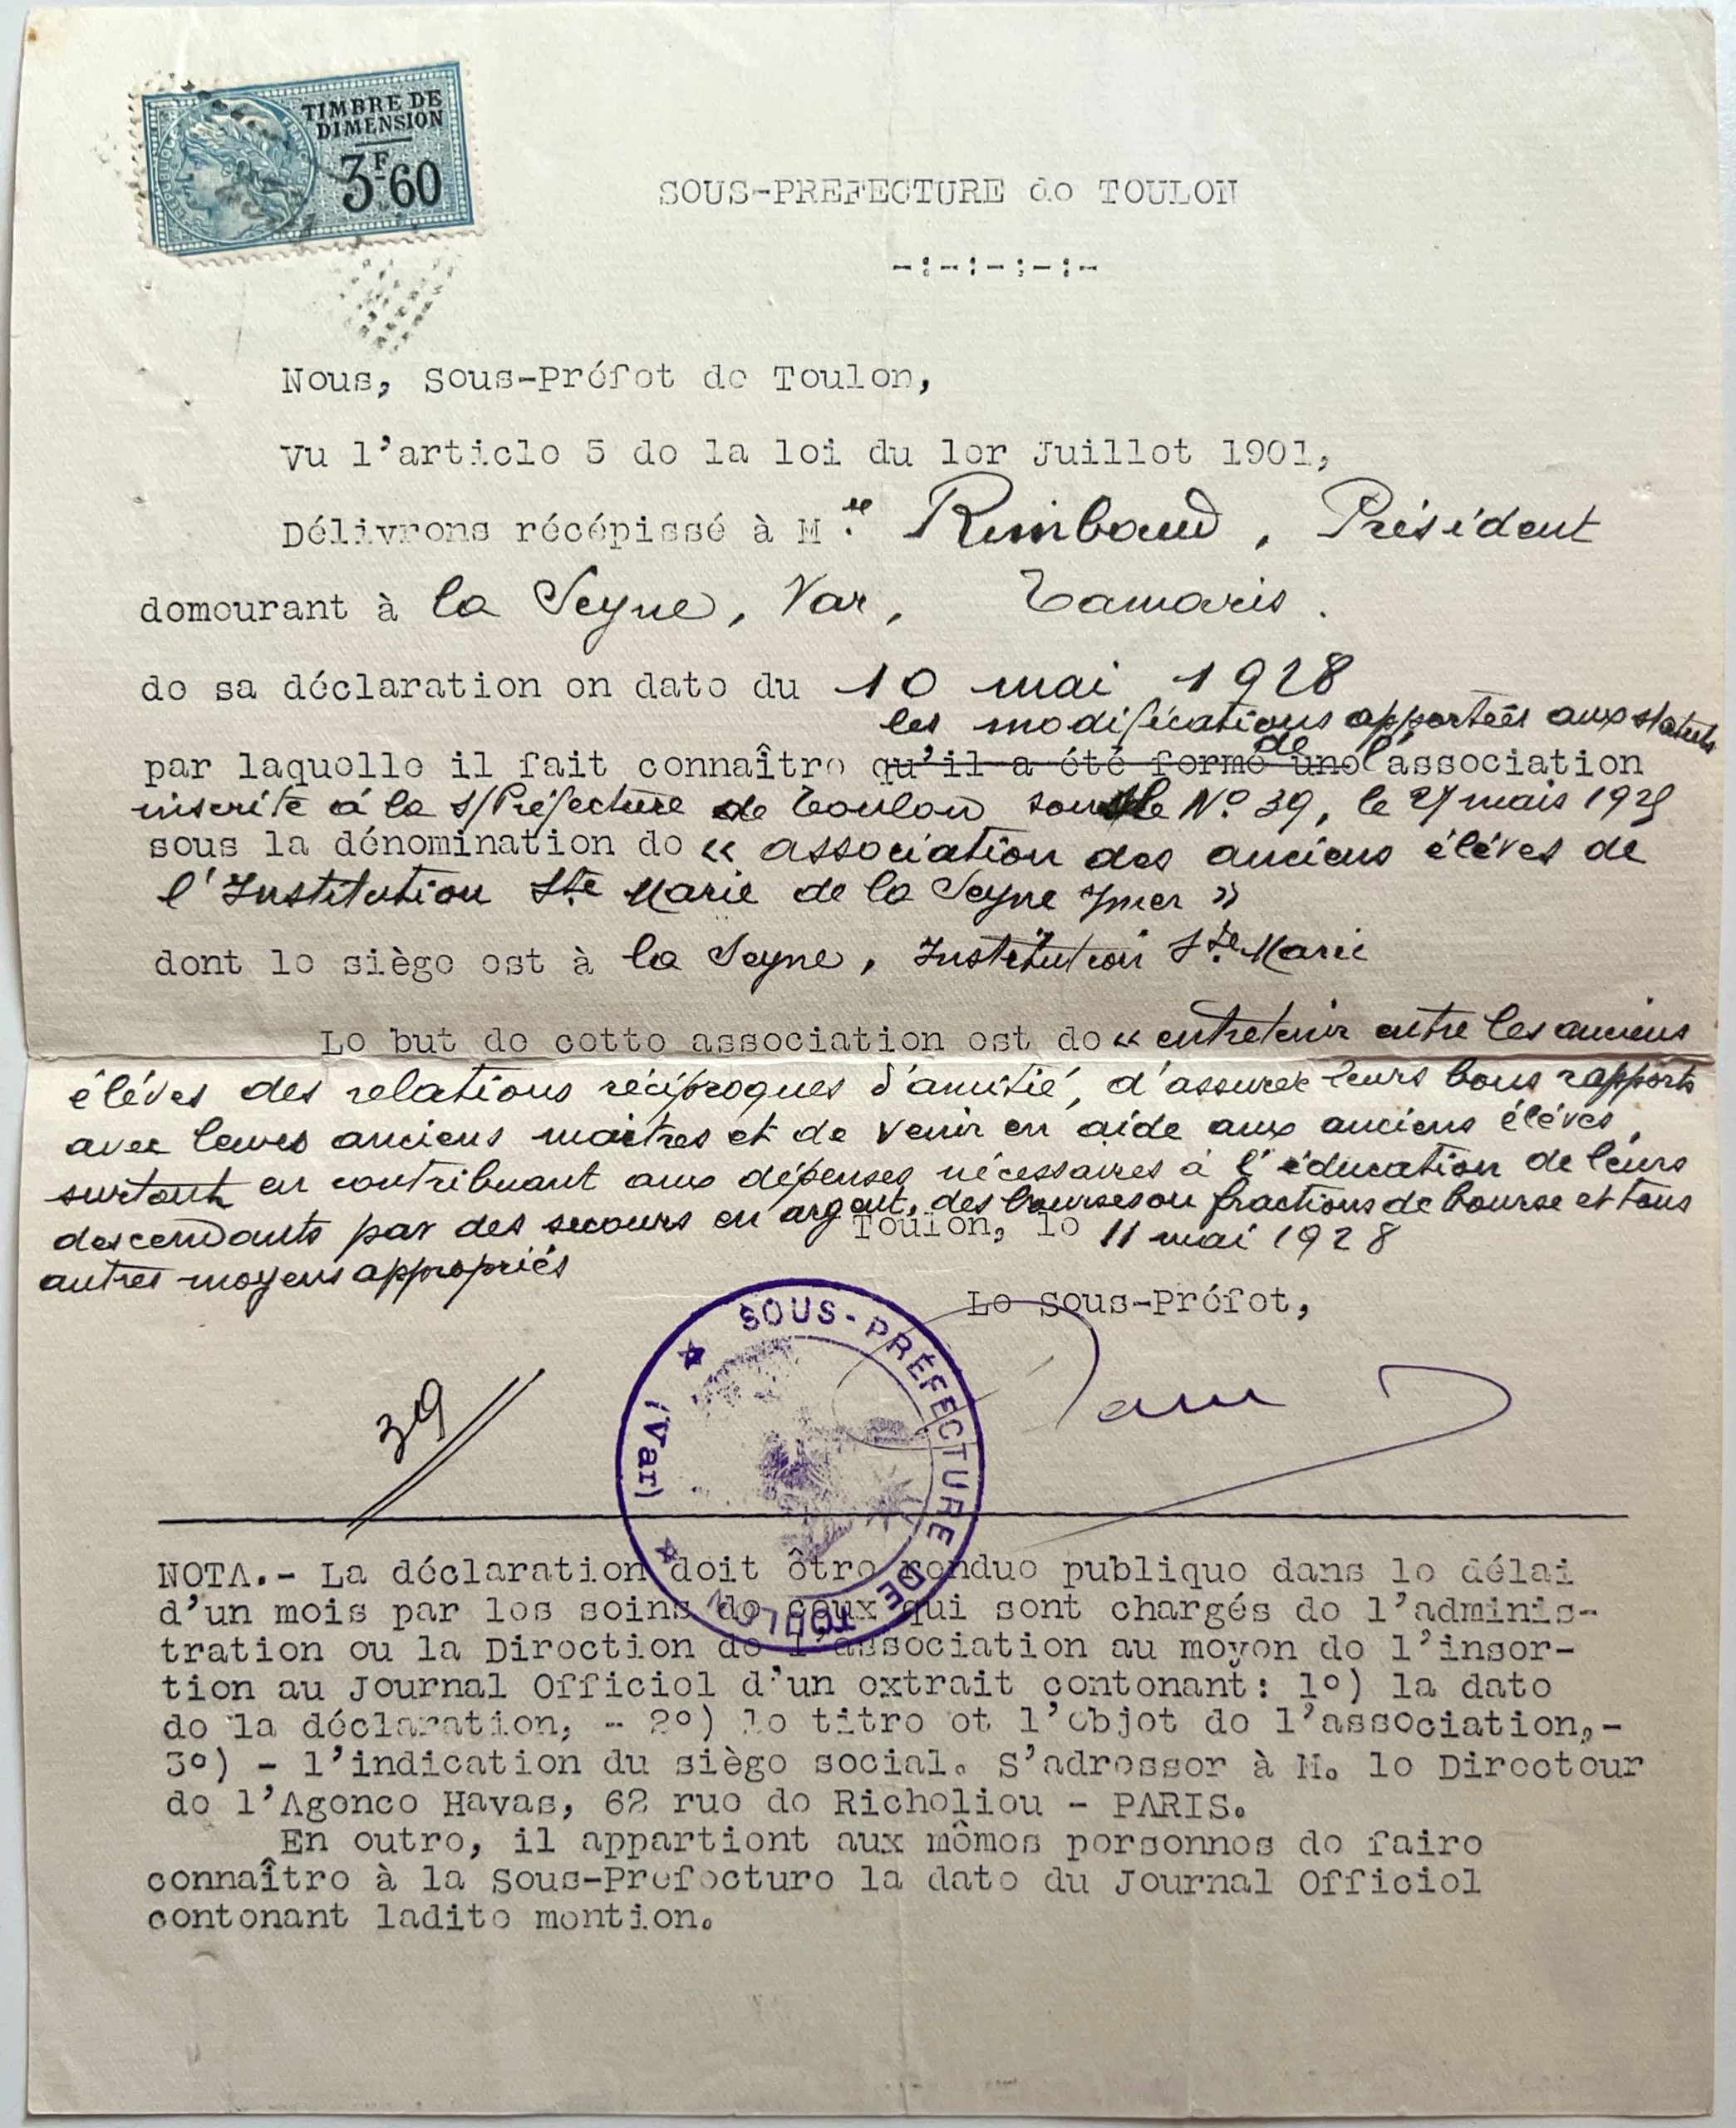 TIMBRE DE
DIMENSION
3F60
SOUS-PREFECTURE de TOULON
-:-:-:-:-
Nous, Sous-Préfet de Toulon,
Vu l'article 5 de la loi du 1er Juillet 1901,
Délivrons récépissé à M. Rimbaud, Président
demeurant à la Seyne, Var, Tamaris.
de sa déclaration en date du 10 mai 1928
les modifications apportées aux statuts
par laquelle il fait connaître qu'il a été formé une de l'association
inscrite à la S/Préfecture de Toulon sous le N° 39, le mais
sous la dénomination de « association des anciens élèves de
l'Institution Ste Marie de la Seyne s/mer »
dont le siège est à la Seyne, Institution Ste Marie
Le but de cette association est de « entretenir entre les anciens
élèves des relations réciproques d'amitié, d'assurer leurs bons rapports
avec leurs anciens maitres et de venir en aide aux anciens élèves,
surtout en contribuant aux dépenses nécessaires à l'éducation de leurs
descendants par des secours en argent, des bourses ou fractions de bourse et tous
autres moyens appropriés
Toulon, le 11 mai 1928
Le Sous-Préfet,
39
SOUS-PRÉFECTURE DE TOULON
(Var)
NOTA.- La déclaration doit être rendue publique dans le délai
d'un mois par les soins de ceux qui sont chargés de l'adminis-
tration ou la Direction de l'association au moyen de l'inser-
tion au Journal Officiel d'un extrait contenant: 1°) la date
de la déclaration, - 2°) le titre et l'objet de l'association,-
3°) - l'indication du siège social. S'adresser à M. le Directeur
de l'Agence Havas, 62 rue de Richelieu - PARIS.
En outre, il appartient aux mêmes personnes de faire
connaître à la Sous-Prefecture la date du Journal Officiel
contenant ladite mention.